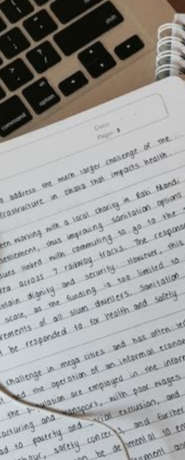 command
option
Date:
Page: 3
address the much larger challenge of the
infrastructure in Dhaka that impacts health.
en working with a local charity in Rish Mandi
ettlement, thus improving sanitation options
ssues linked with commuting to go to the
area across 7 railway tracks. The response
ntain dignity and security. However, this
scale, as the funding is too limited to
rements of all slum dwellers. Sanitation
be responded to for health and safety
challenge in mega cities and has often
the operation of an informal econom
the population are employed in the inform
acturing and transport, with poor wages
ad to poverty and social exclusion, and
our, safety concerns, and further
can be detrimental to